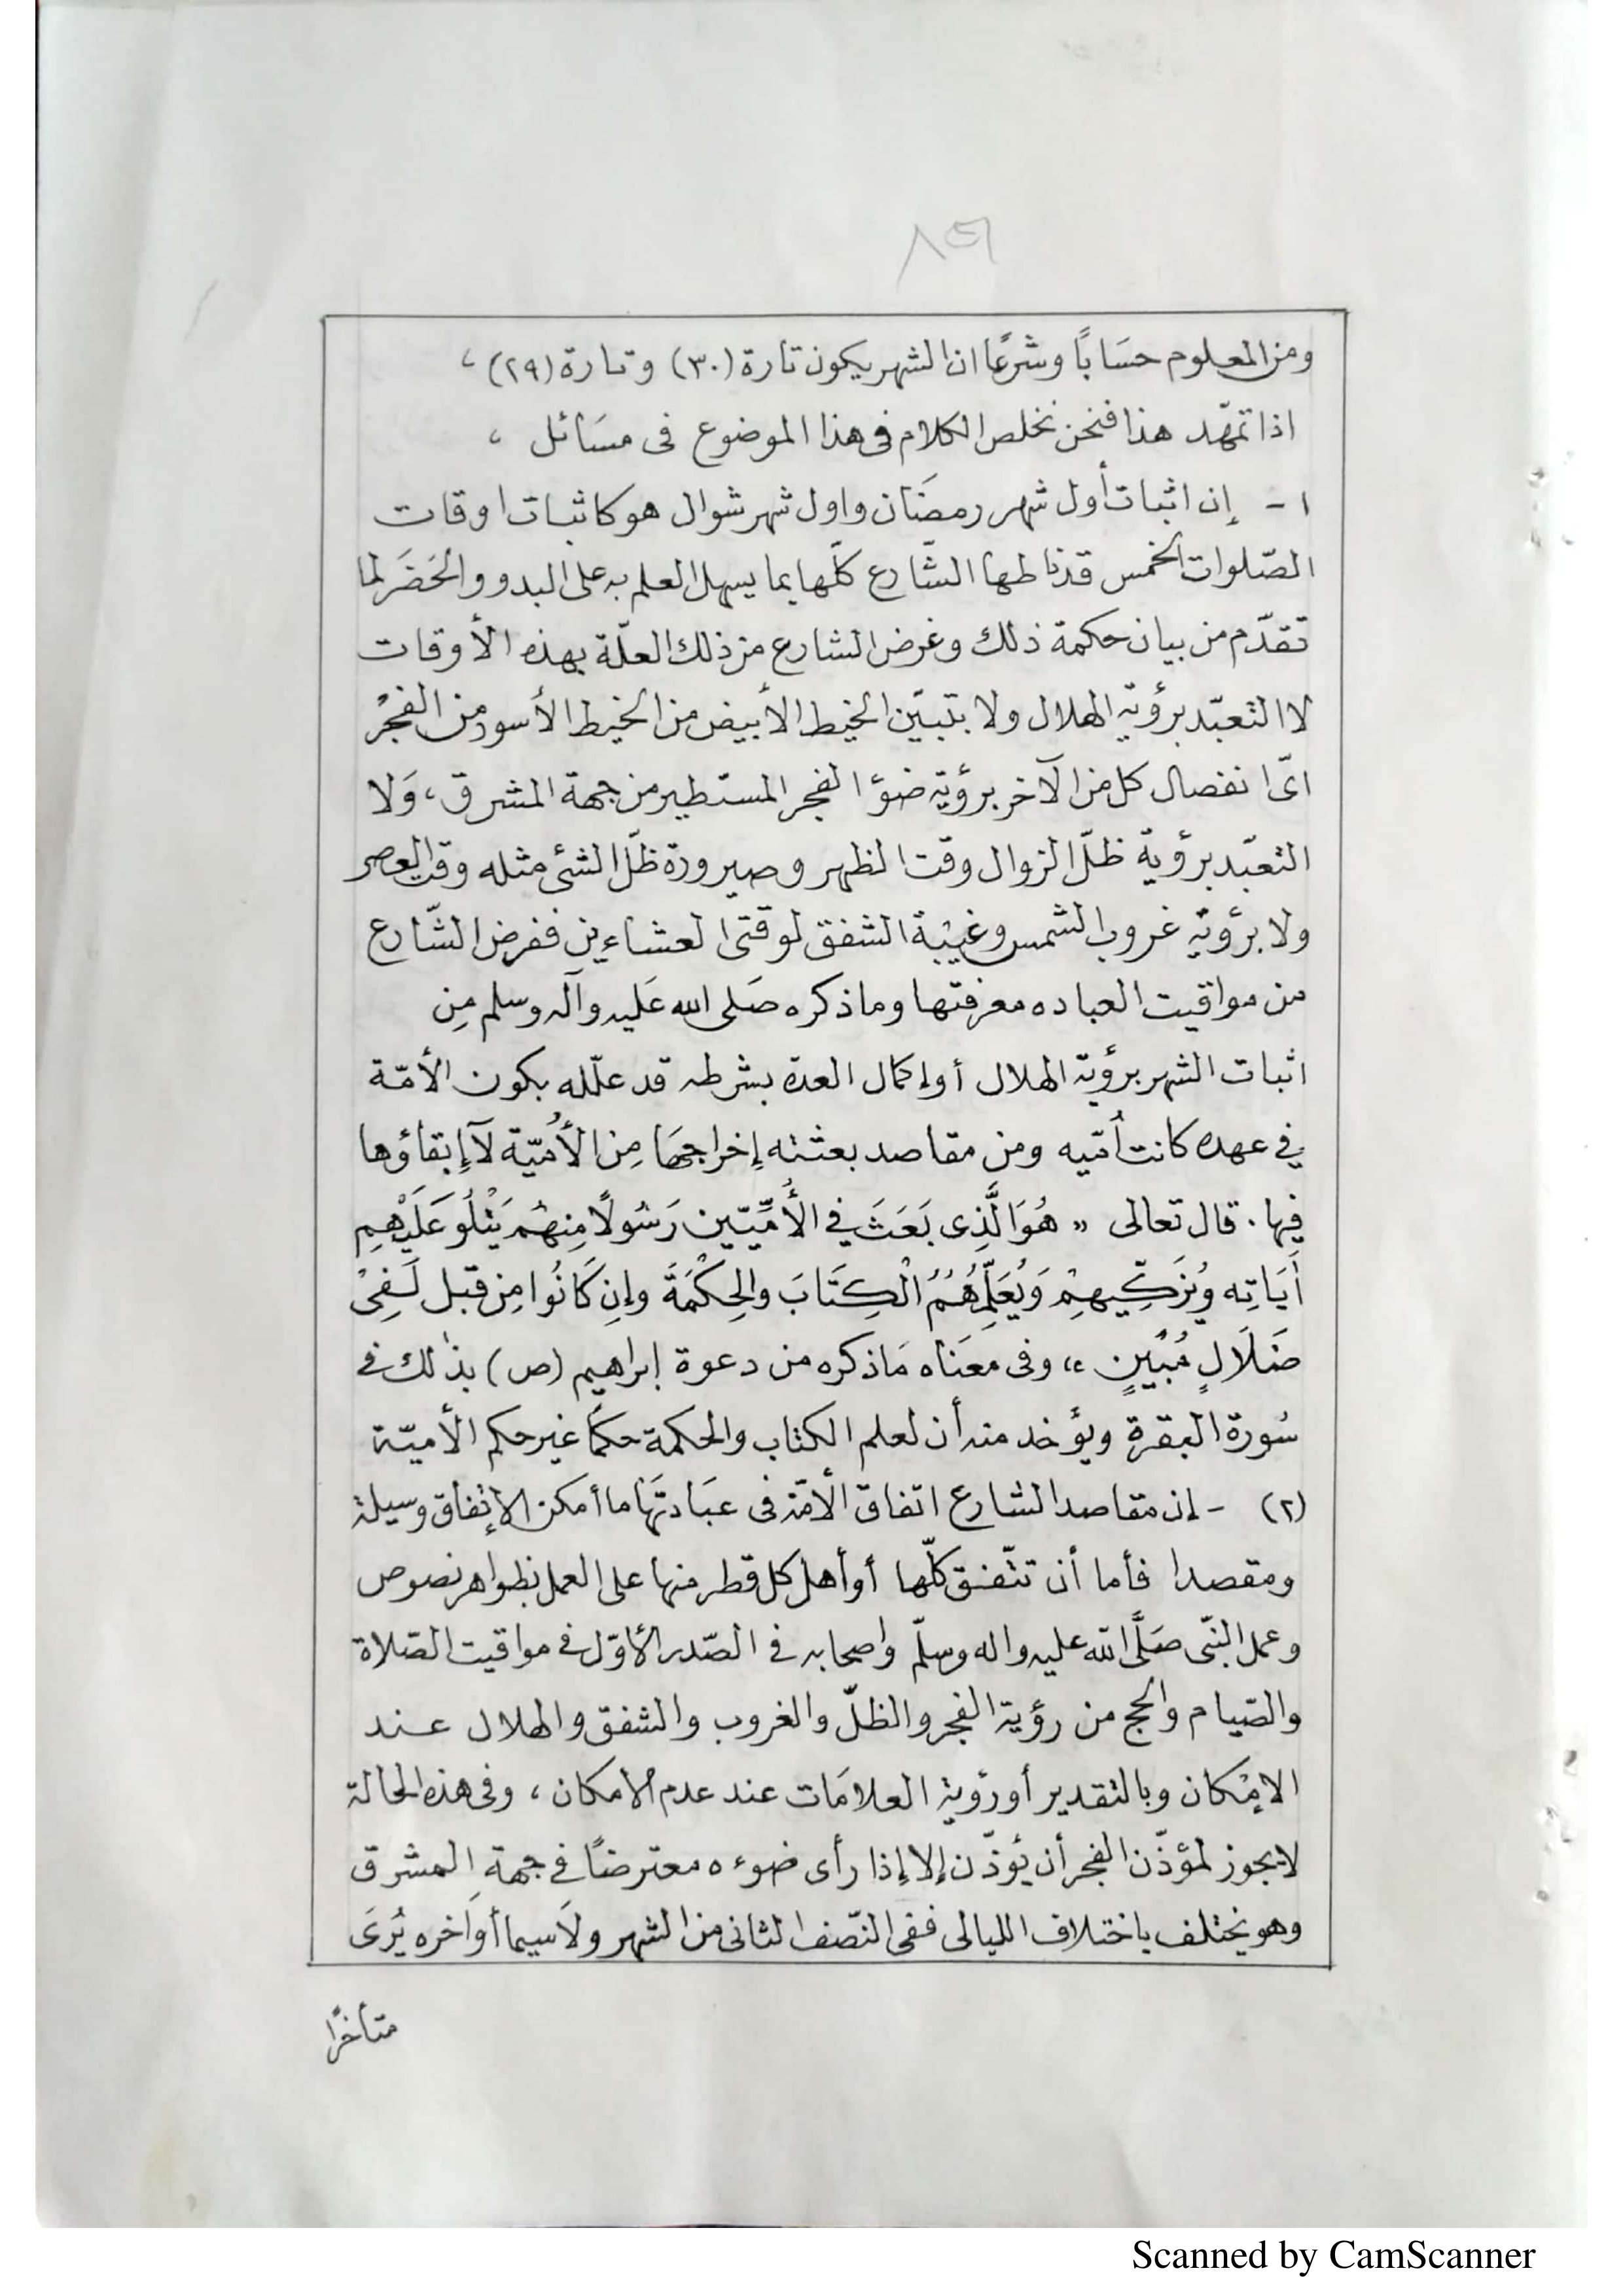 ومن المعلوم حسَابًا وشرعًا ان الشهر يكون تارة (٣٠) وتارة (٢٩) ،
اذا تمهّد هذا فنحن نخلص الكلام فى هذا الموضوع فى مسَائل ،
١ - إن اثبات أول شهر رمضَان واول شهر شوال هو كاثبات اوقات
الصّلوات الخمس قد ناطها الشّارع كلّها بما يسهل العلم به على البدو والحَضَر لما
تقدّم من بيان حكمة ذلك وغرض الشارع من ذلك العلّة بهذه الأوقات
لا التعبّد برؤية الهلال ولا بتبيّن الخيط الأبيض من الخيط الأسود من الفجْر
اىّ انفصال كل من الآخر برؤية ضؤ الفجر المستطير من جهة المشرق ، وَلا
التعبّد برؤية ظلّ الزوال وقت الظهر وصيرورة ظلّ الشئ مثله وقت العصر
ولا برؤية غروب الشمس وغيْبة الشفق لوقتى العشاءين ففرض الشّارع
من مواقيت العباده معرفتها وما ذكره صَلى الله عَليه وآله وسلم مِن
اثبات الشهر برؤية الهلال أو إكمال العدة بشرطه قد علّله بكون الأمّة
في عهده كانت أمّيه ومن مقاصد بعثته إخراجهَا مِن الأُميّة لآ إبقاؤها
فيها . قال تعالى " هُوَ الَّذِى بَعَثَ في الأُمِّيّين رَسُولًا مِنهُم يَتْلُو عَلَيْهِم
أَيَاتِه وُيزَكِّيهِمْ وَيُعَلِّمُهُمُ الْكِتَابَ والحِكْمَةَ وإنِ كَانُوا مِن قبل لَفِىْ
ضَلَالٍ مُبْيِنٍ " وفى معنَاه مَا ذكره من دعوة إبراهيم (ص) بذلك في
سُورة البقرة ويؤخد منه أن لعلم الكتاب والحكمة حكمًا غير حكم الأميّة
(٢) - إن مقاصد الشارع اتفاق الأمّة فى عبَادتهَا ما أمكن الإتفاق وسيلة
ومقصدا فأما أن تتّفق كلّها أو أهل كل قطر منها على العمل بظواهر نصوص
وعمل النبّى صَلَّى اللّه عليه واله وسلّم واصحابه في الصّدر الأوّل في مواقيت الصّلاة
والصّيام والحج من رؤية الفجر والظلّ والغروب والشفق والهلال عند
الإمْكان وبالتقدير أو رؤية العلامَات عند عدم الأمكان ، وفى هذه الحالة
لا يجوز لمؤذّن الفجر أن يُوذّن إلا إذا رأى ضوءه معترضًا في جهة المشرق
وهو يختلف باختلاف الليالى ففى النّصف الثانى من الشهر ولاَسيما أوَاخره يُرَىَ
متأخرًا
Scanned by CamScanner